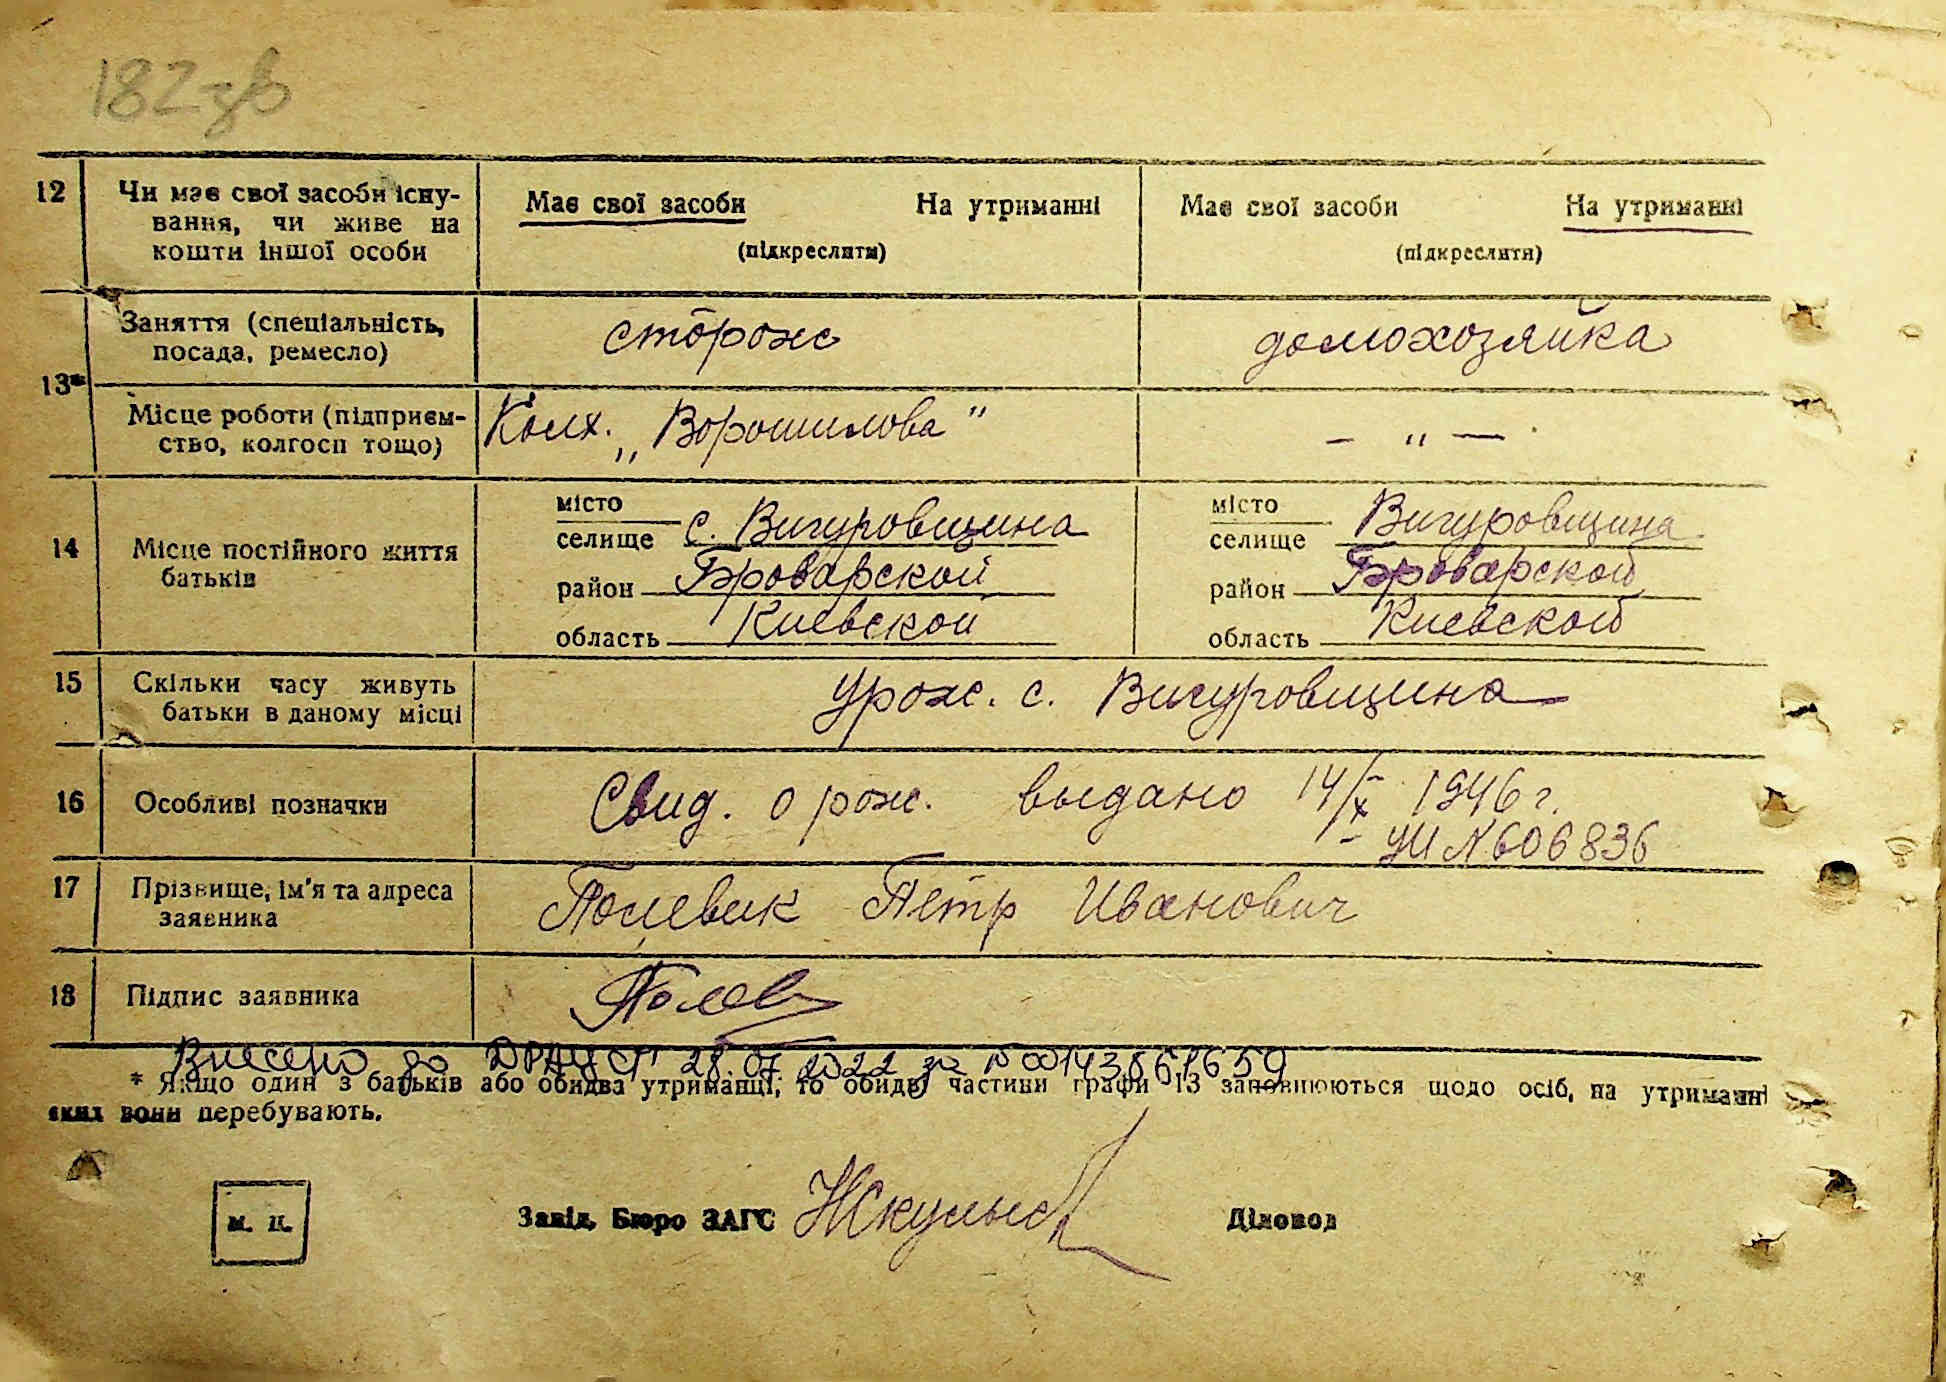 182 зв
12 Чи має свої засоби існу- Має свої засоби На утриманні Має свої засоби На утриманні
вання, чи живе на
кошти іншої особи (підкреслити) (підкреслити)
Заняття (спеціальність, сторож домохозяйка
посада, ремесло)
13*
Місце роботи (підприєм- Колх. „Ворошилова" — " —
ство, колгосп тощо)
місто місто
14 Місце постійного життя селище с. Вигуровщина селище Вигуровщина
батьків район Броварской район Броварской
область Киевской область Киевской
15 Скільки часу живуть Урож. с. Вигуровщина
батьки в даному місці
16 Особливі позначки Свид. о рож. выдано 14/X 1946 г.
№ 606836
17 Прізвище, ім'я та адреса Полевик Петр Иванович
заявника
18 Підпис заявника Полев
Внесено до ДРАЦСГ 28.07.2022 за №
* Якщо один з батьків або обидва утриманці, то обидві частини графи 13 заповнюються щодо осіб, на утриманні
яких вони перебувають.
М. П. Завід. Бюро ЗАГС Діловод